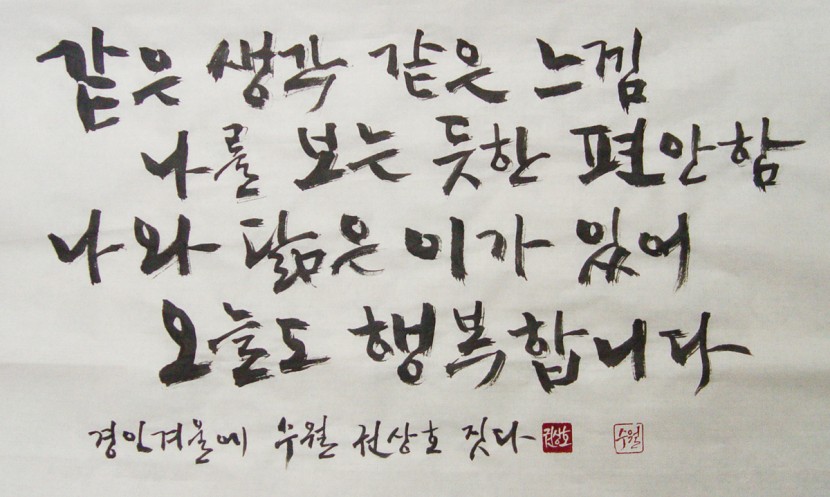 같은 생각 같은 느낌
나를 보는 듯한 편안함
나와 닮은 이가 있어
오늘도 행복합니다
경인겨울에 수월 권상호 짓다 권상호 수월